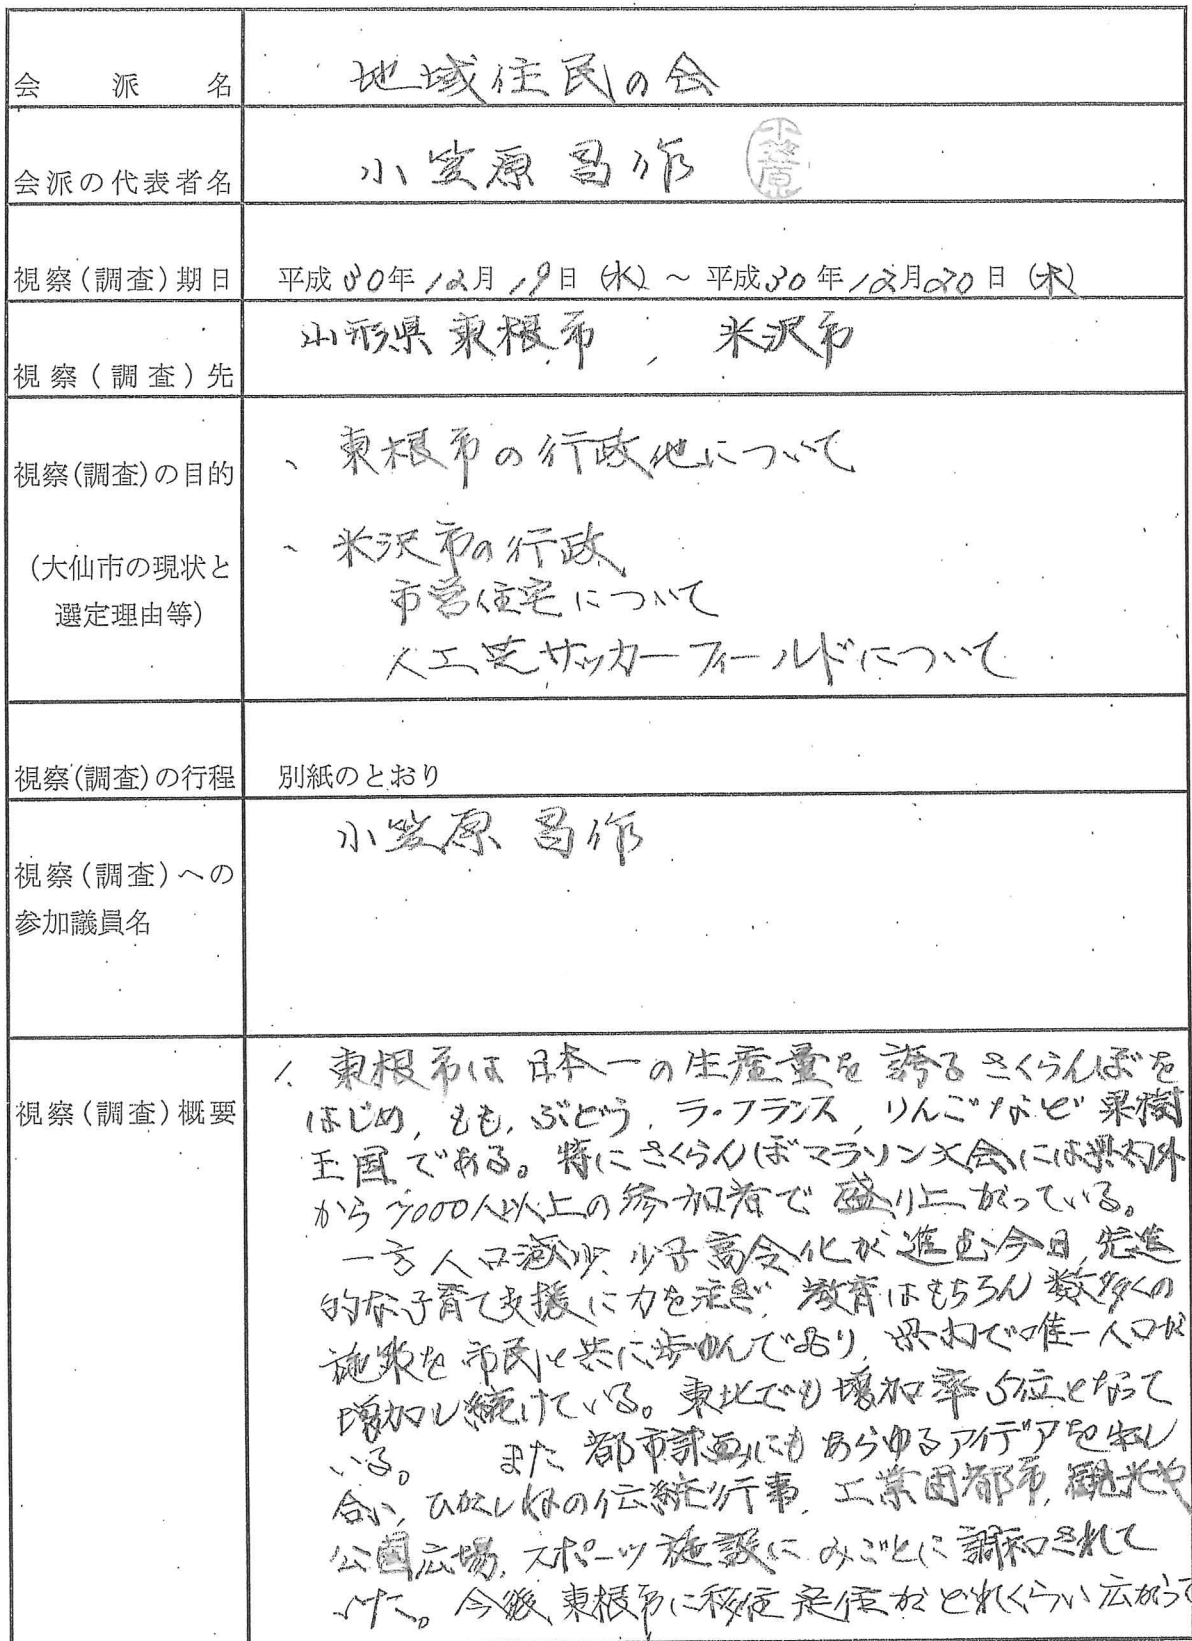 会派名 地域住民の会
会派の代表者名 小笠原 昌作 小笠原
視察(調査)期日 平成30年12月19日(水)~平成30年12月20日(木)
視察(調査)先 山形県東根市、米沢市
視察(調査)の目的
(大仙市の現状と
選定理由等)
、東根市の行政他について
、米沢市の行政
市営住宅について
人工芝サッカーフィールドについて
視察(調査)の行程 別紙のとおり
視察(調査)への
参加議員名
小笠原 昌作
視察(調査)概要
1. 東根市は日本一の生産量を誇るさくらんぼを
はじめ, もも, ぶどう, ラ・フランス, りんごなど果樹
王国である。特にさくらんぼマラソン大会には県内外
から7000人以上の参加者で盛り上がっている。
一方人口減少、少子高令化が進む今日, 先進
的な子育て支援に力を注ぎ, 教育はもちろん数多くの
施策を市民と共に歩ゆんでおり, 県内で唯一人口が
増加し続けている。東北でも増加率5位となって
いる。 また都市計画にもあらゆるアイデアを出し
合い, ひがしねの伝統行事, 工業団都市, 観光や
公園広場, スポーツ施設にみごとに調和されて
いた。今後、東根市に移住定住がどれくらい広がって